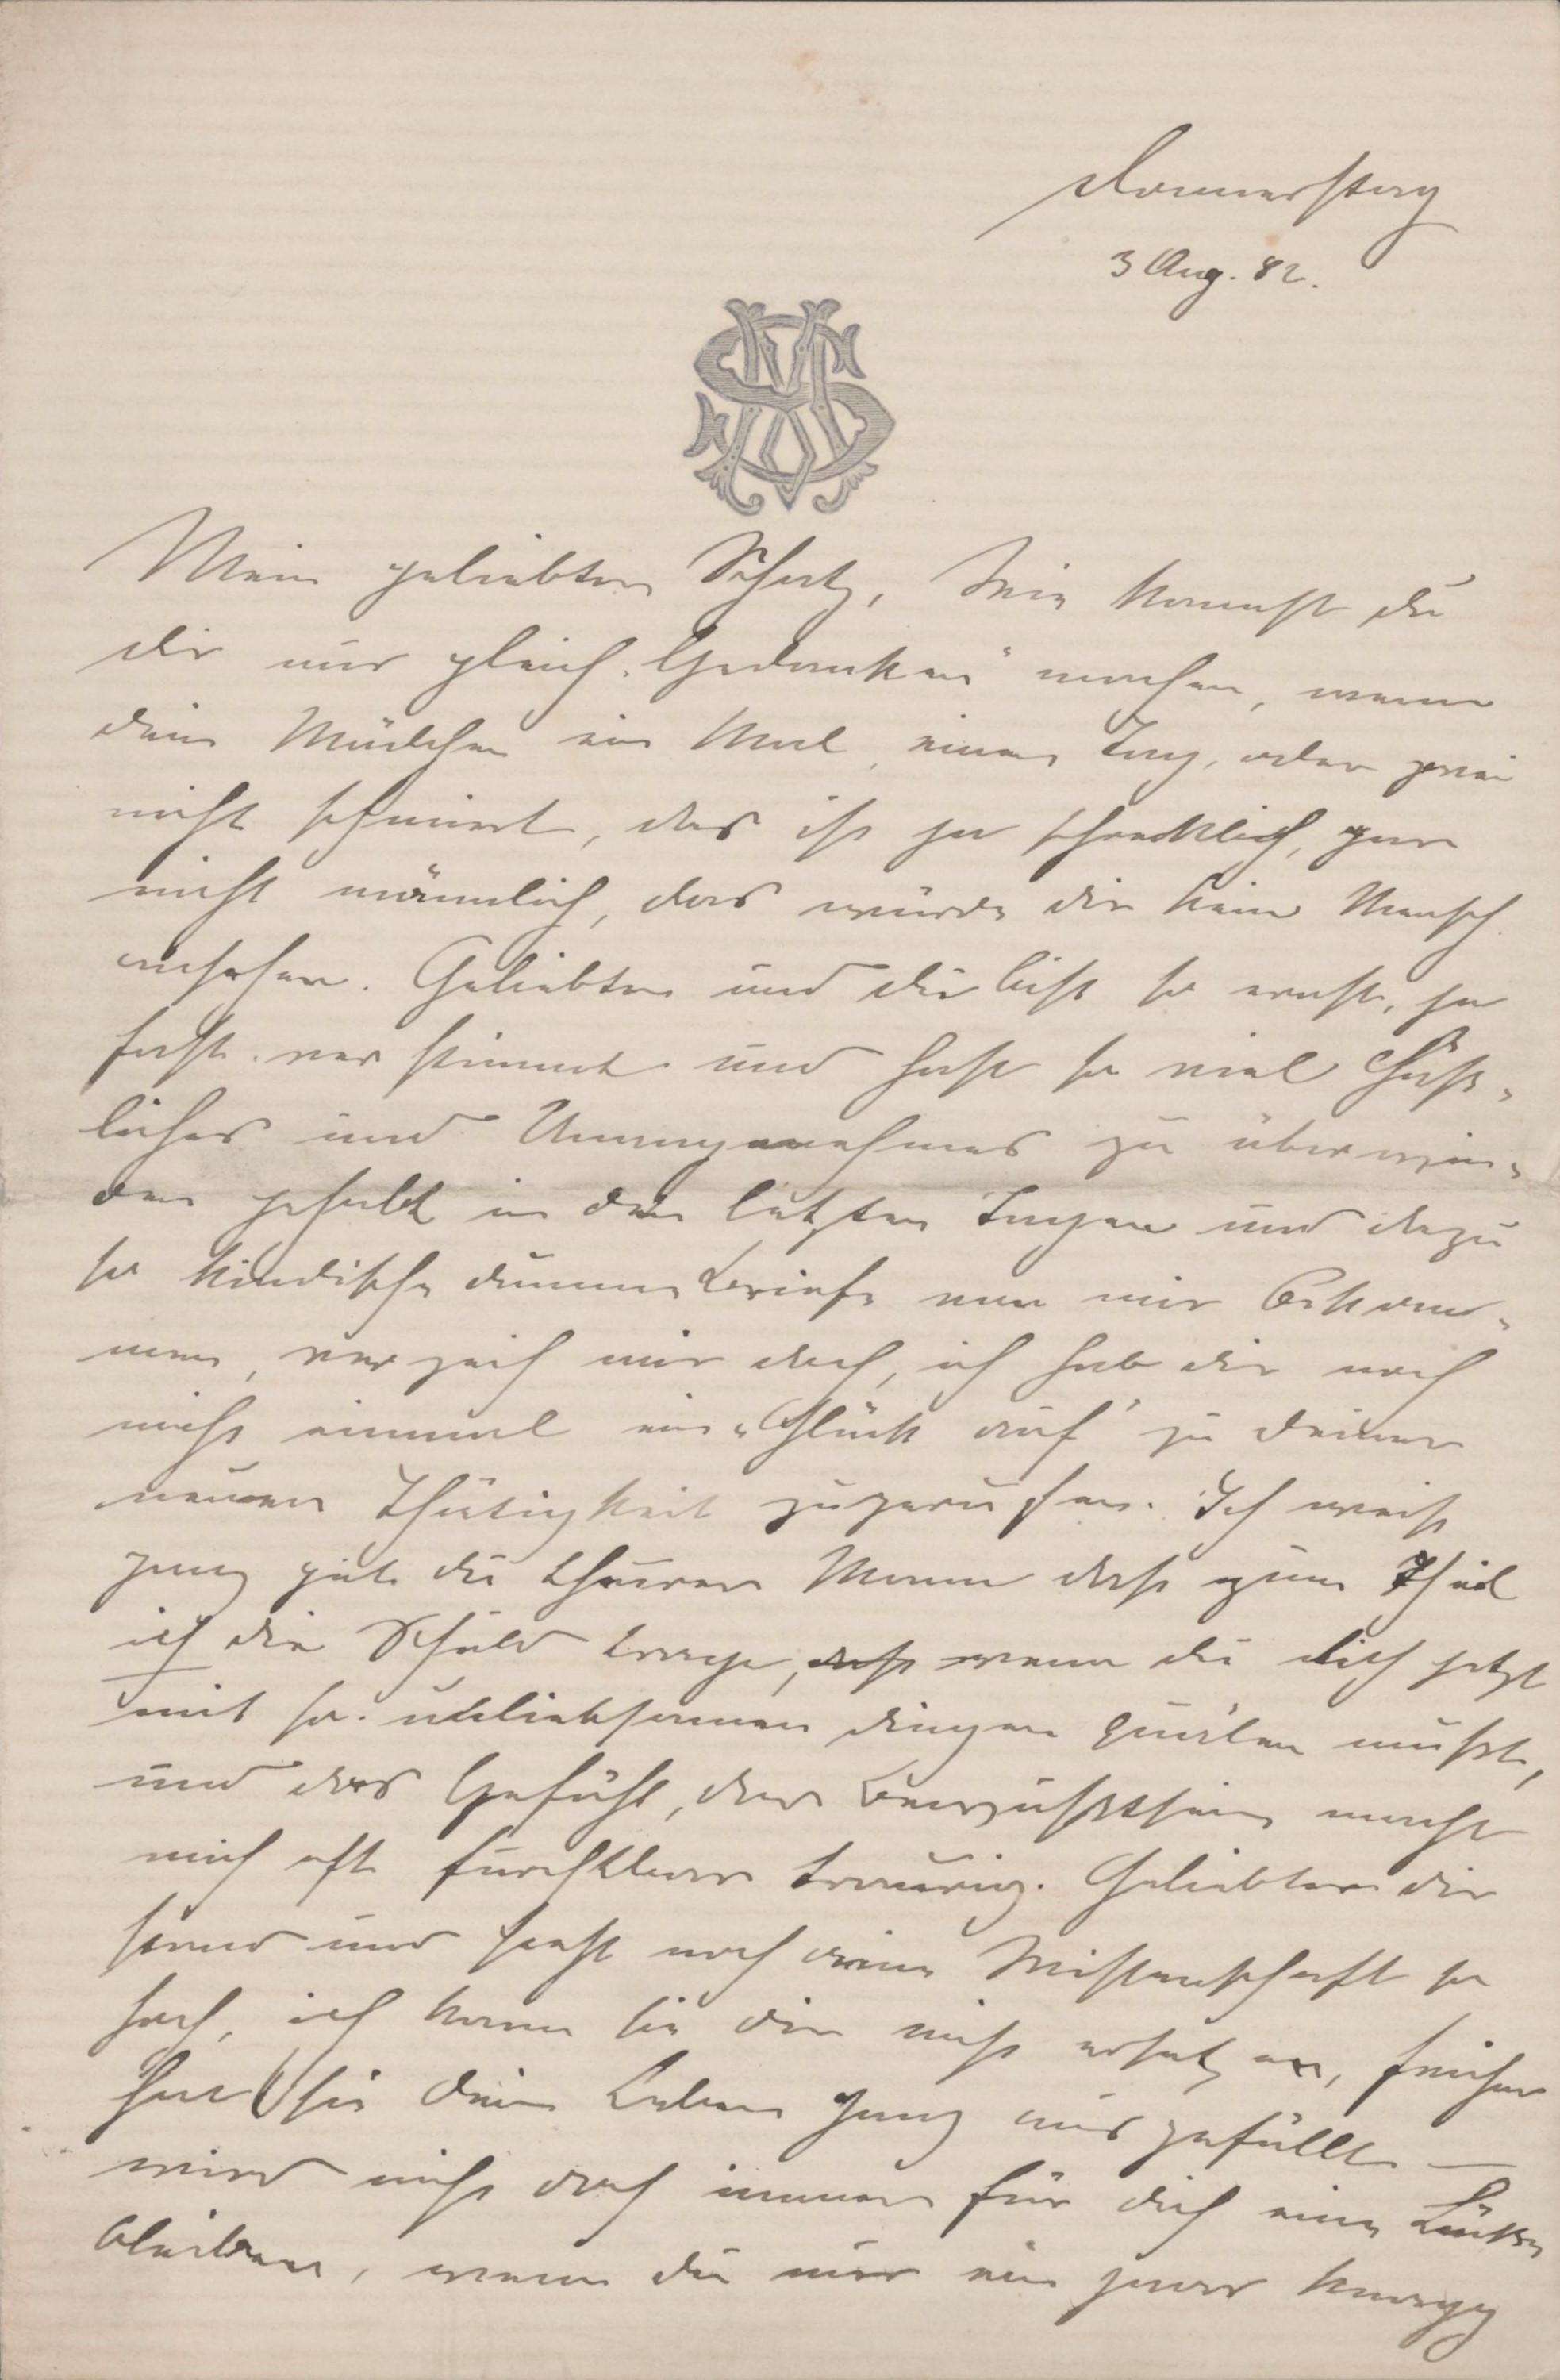 Donnerstag
3 Aug. 82.
MS
Mein geliebter Schatz, Wie kannst du
dir nur gleich „Gedanken" machen, wenn
dein Mädchen ein Mal einen Tag, oder zwei
nicht schreibt, das ist ja schrecklich, gar
nicht männlich, das würde dir kein Mensch
ansehen. Geliebter und du bist so ernst, ja
fast verstimmt und hast so viel Häß-
liches und Unangenehmes zu überwin-
den gehabt in den letzten Tagen und dazu
so kindische dumme Briefe von mir bekom-
men, verzeih mir doch, ich hab dir noch
nicht einmal ein „Glück auf" zu deiner
neuen Thätigkeit zugerufen. Ich weiß
ganz gut du theurer Mann daß zum Theil
ich die Schuld trage, daß wenn du dich jetzt
mit so unliebsamen Dingen quälen mußt,
und das Gefühl, das Bewußtsein macht
mich oft furchtbar traurig. Geliebter dir
stand und steht noch deine Wissenschaft so
hoch, ich kann sie dir nicht ersetzen, früher
hat sie dein Leben ganz ausgefüllt —
wird nicht doch immer für dich eine Lücke
bleiben, wenn du nur ein paar